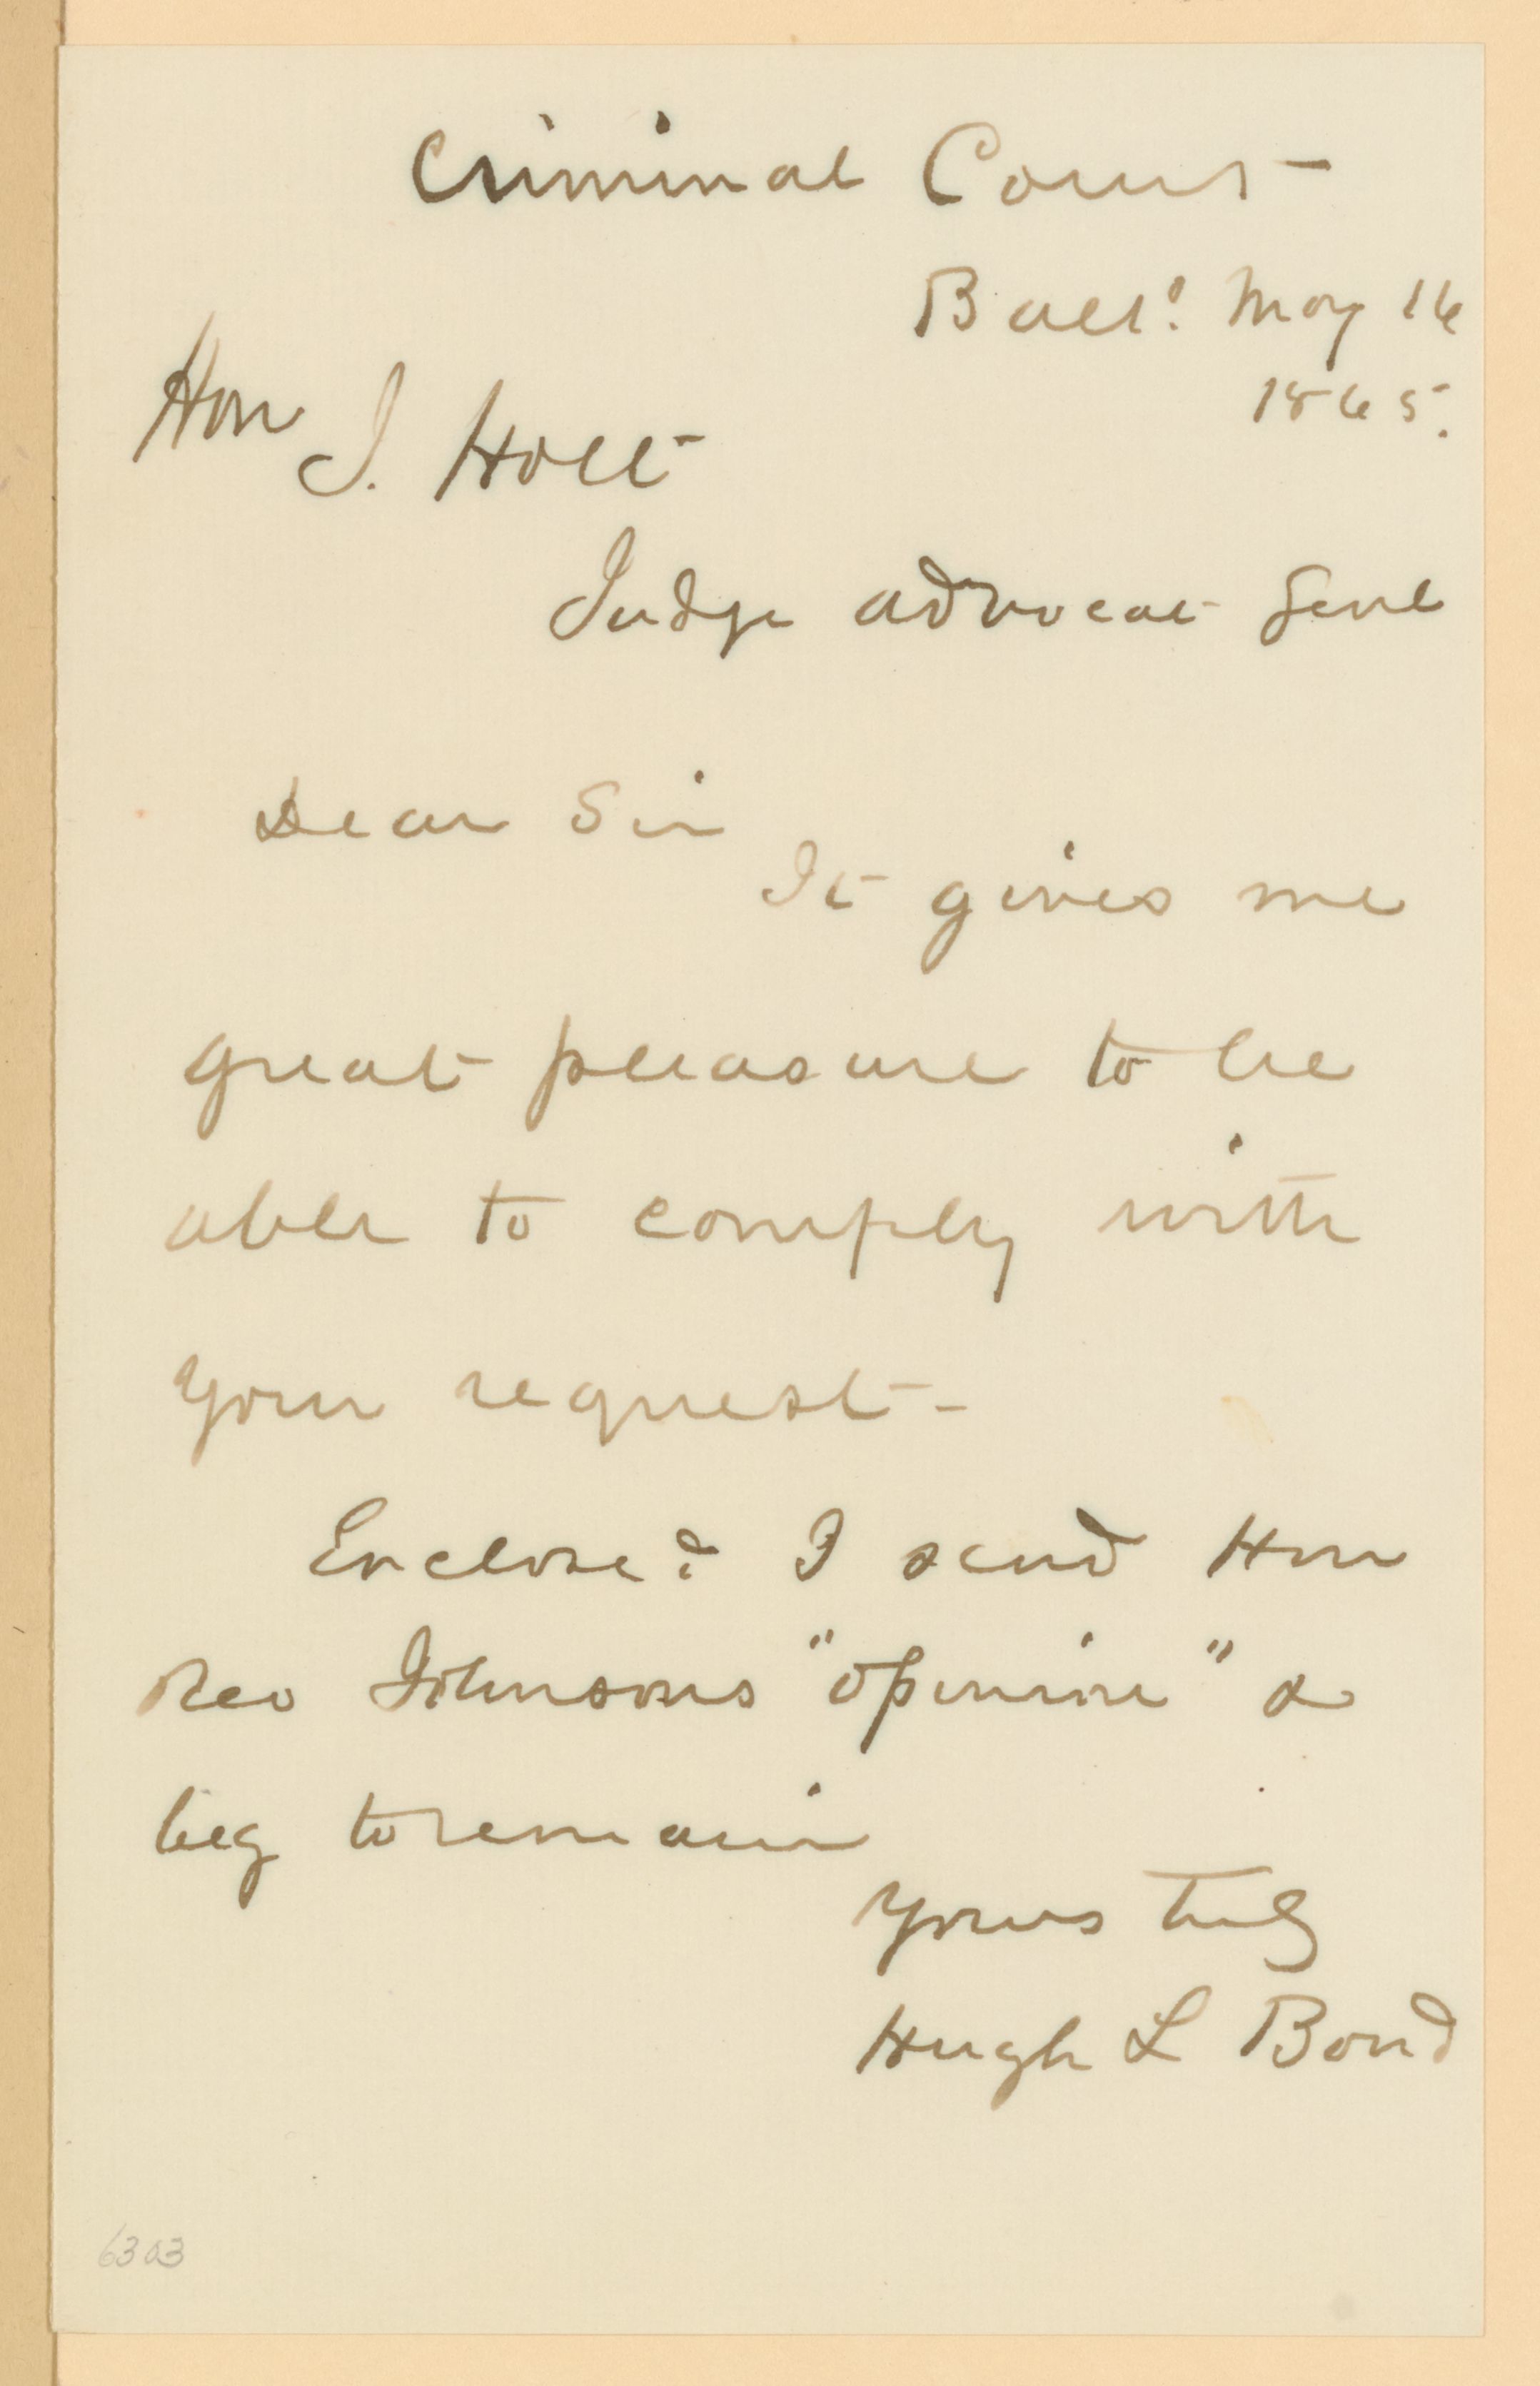 Criminal Court
Balto: May 16
1865.
Hon J. Holt
Judge Advocat Genl
Dear Sir
It gives me
great pleasure to be
able to comply with
your request -
Enclosed I send Hon
Rev Johnsons "opinion" &
beg to remain
Yours truly
Hugh L Bond
6303